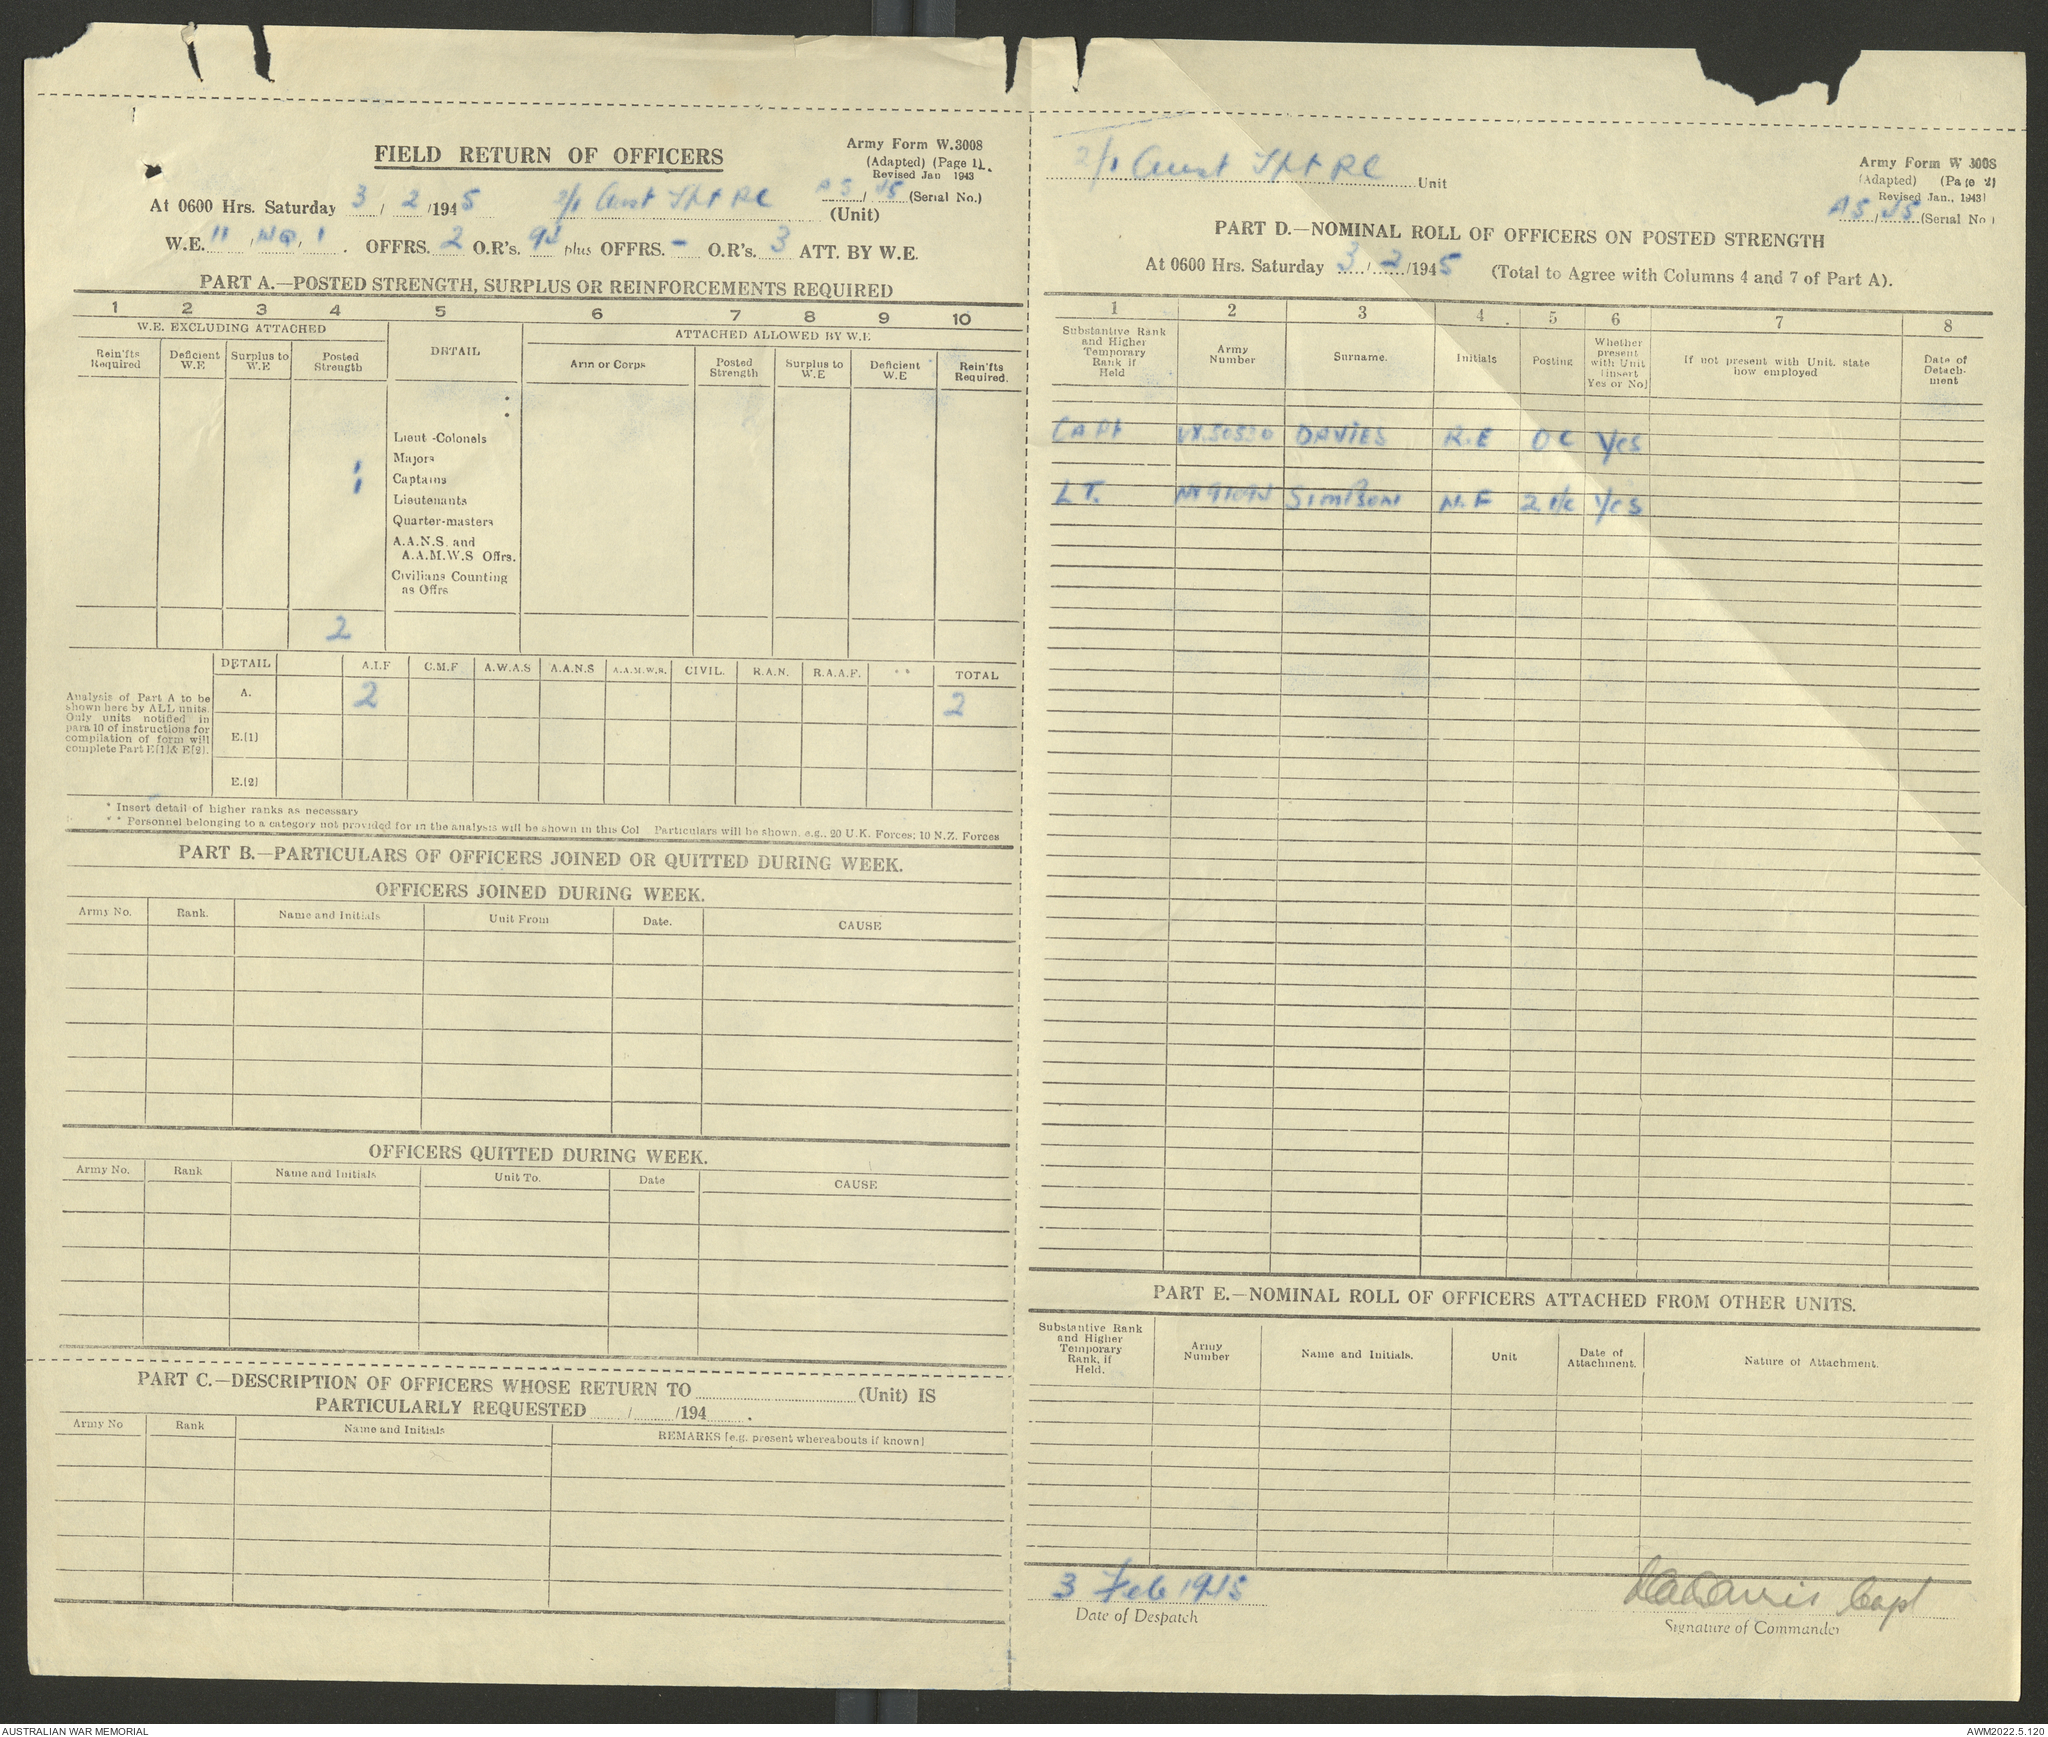 FIELD RETURN OF OFFICERS
Army Form W.3008
(Adapted) (Page 1).
Revised Jan 1943
At 0600 Hrs. Saturday 3 / 2 /1945 2/1 Aust Tpt RC (Unit) AS / 45 (Serial No.)
W.E. 11 / / 1 . OFFRS. 2 O.R's. 94 plus OFFRS. - O.R's. 3 ATT. BY W.E.
PART A.—POSTED STRENGTH, SURPLUS OR REINFORCEMENTS REQUIRED
1 2 3 4 5 6 7 8 9 10
W.E. EXCLUDING ATTACHED
DETAIL
ATTACHED ALLOWED BY W.E
Rein'fts Required
Deficient W.E
Surplus to W.E
Posted Strength
Arm or Corps
Posted Strength
Surplus to W.E
Deficient W.E
Rein'fts Required.
Lieut -Colonels
Majors
1 Captains
1 Lieutenants
Quarter-masters
A.A.N.S. and
A.A.M.W.S Offrs.
Civilians Counting
as Offrs
2
DETAIL A.I.F C.M.F A.W.A.S A.A.N.S A.A.M.W.S. CIVIL. R.A.N. R.A.A.F. * * TOTAL
Analysis of Part A to be
shown here by ALL units.
Only units notified in
para 10 of instructions for
compilation of form will
complete Part E[1]& E[2].
A. 2 2
E.[1]
E.[2]
* Insert detail of higher ranks as necessary
* * Personnel belonging to a category not provided for in the analysis will be shown in this Col Particulars will be shown, e.g., 20 U.K. Forces; 10 N.Z. Forces
PART B.—PARTICULARS OF OFFICERS JOINED OR QUITTED DURING WEEK.
OFFICERS JOINED DURING WEEK.
Army No. Rank. Name and Initials Unit From Date. CAUSE
OFFICERS QUITTED DURING WEEK.
Army No. Rank Name and Initials Unit To. Date CAUSE
PART C.—DESCRIPTION OF OFFICERS WHOSE RETURN TO (Unit) IS
PARTICULARLY REQUESTED / /194 .
Army No Rank Name and Initials REMARKS [e.g. present whereabouts if known]
2/1 Aust Tpt RC Unit
Army Form W 3008
(Adapted) (Page 2)
Revised Jan., 1943
AS / 45 (Serial No )
PART D.—NOMINAL ROLL OF OFFICERS ON POSTED STRENGTH
At 0600 Hrs. Saturday 3 / 2 /1945 (Total to Agree with Columns 4 and 7 of Part A).
1 2 3 4 5 6 7 8
Substantive Rank and Higher Temporary Rank if Held
Army Number
Surname.
Initials
Posting
Whether present with Unit [insert Yes or No]
If not present with Unit, state how employed
Date of Detach-ment
CAPt VX50530 DAVIES R.E OC Yes
LT. SIMPSON N.F 2 i/c Yes
PART E.—NOMINAL ROLL OF OFFICERS ATTACHED FROM OTHER UNITS.
Substantive Rank and Higher Temporary Rank, if Held.
Army Number
Name and Initials.
Unit
Date of Attachment.
Nature of Attachment.
3 Feb 1945
Date of Despatch
Capt
Signature of Commander
AUSTRALIAN WAR MEMORIAL
AWM2022.5.120